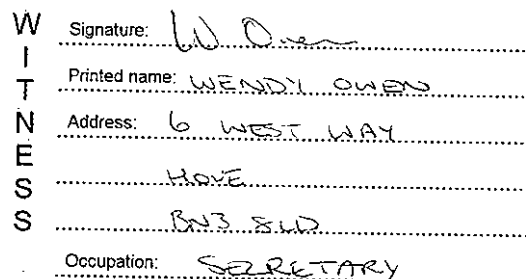 WITNESS
Signature: W Owen
Printed name: WENDY OWEN
Address: 6 WEST WAY
HOVE
BN3 8LD
Occupation: SECRETARY